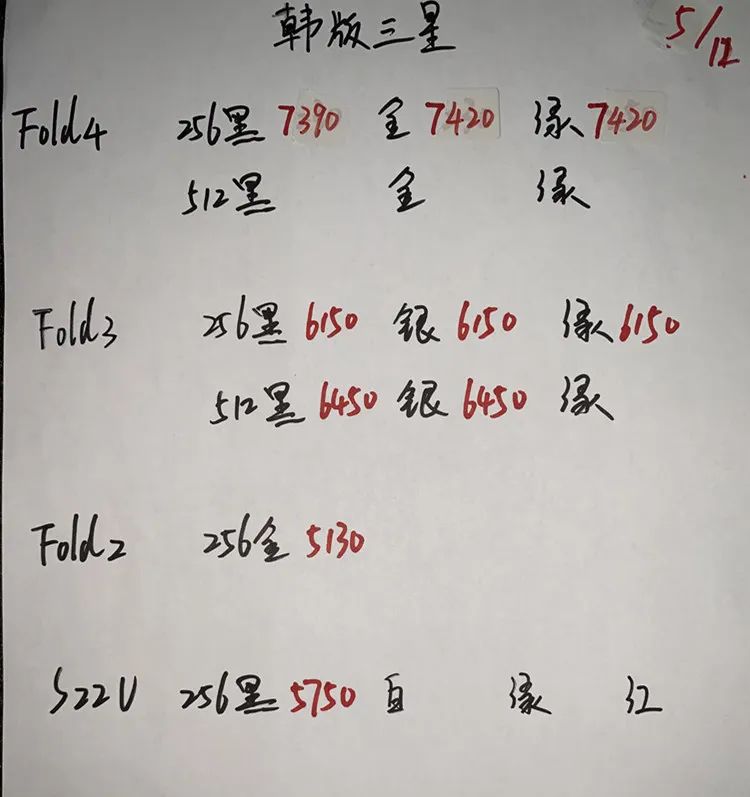 韩版三星
5/12
Fold4 256黑 7390 金 7420 绿 7420
512黑 金 绿
Fold3 256黑 6150 银 6150 绿 6150
512黑 6450 银 6450 绿
Fold2 256金 5130
S22U 256黑 5750 白 绿 红